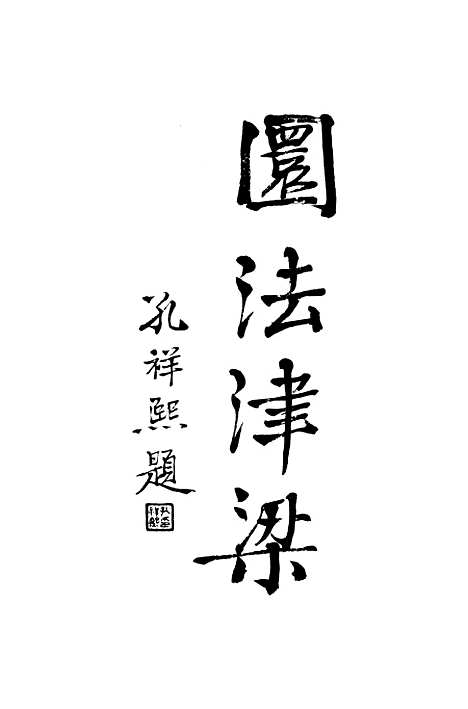 圜法津梁
孔祥熙題